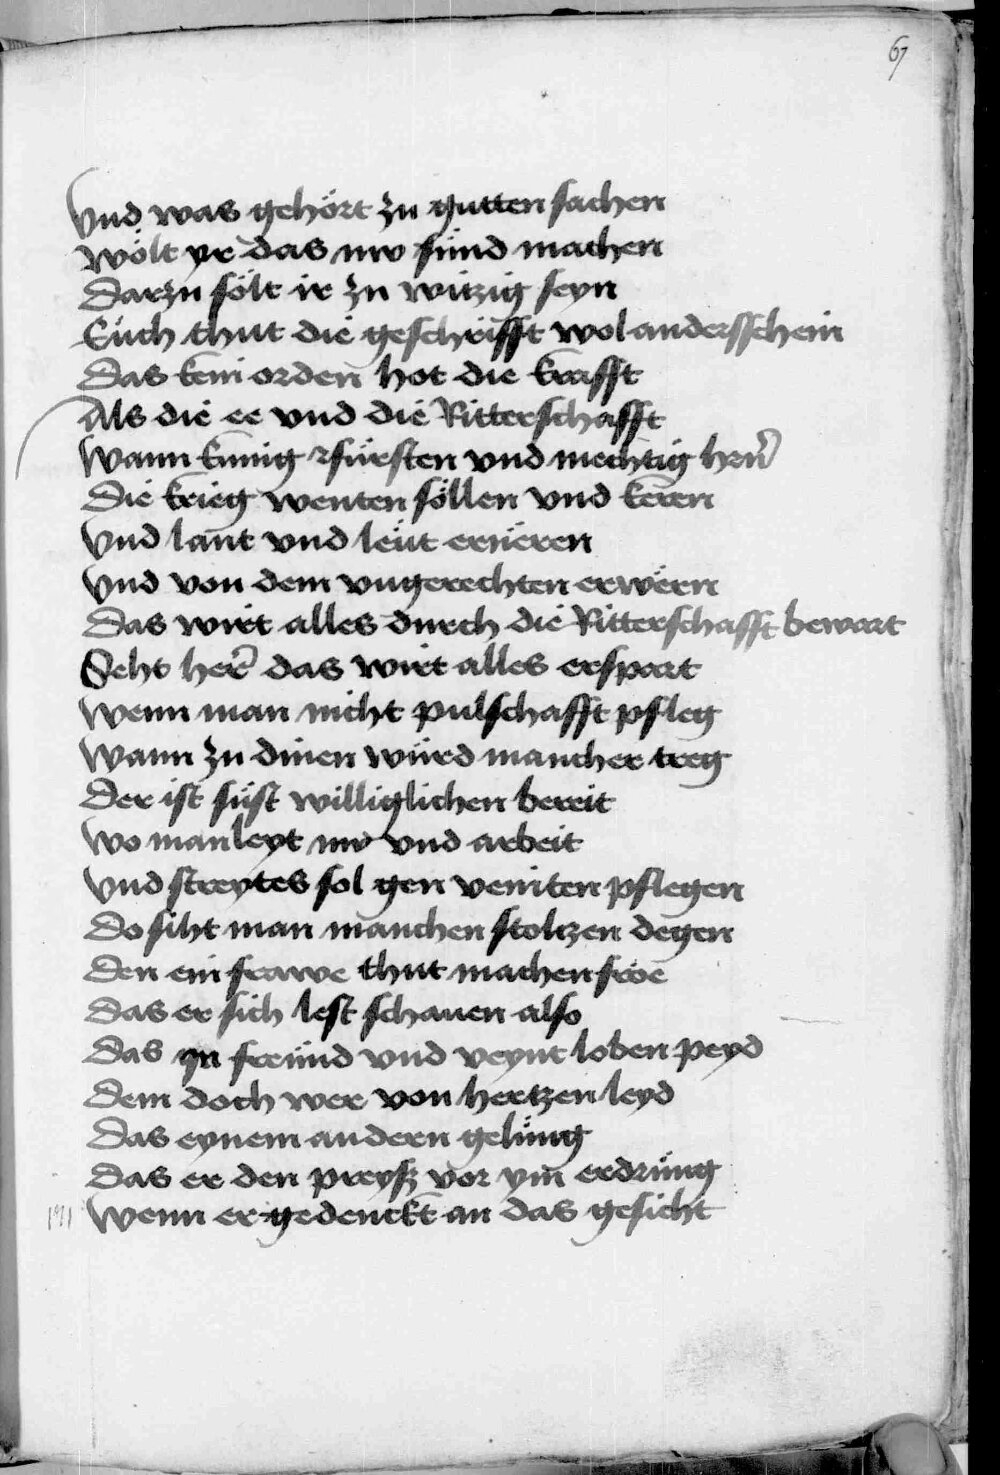 67
Vnd was gehört zu gutten sachen
Wölt yr das nw sünd machen
Darzu sölt ir zu witzig seyn
Euch thut die geschrifft wol andersschein
Das kein orden hot die krafft
Als die ee vnd die Ritterschafft
Wann künig fürsten vnd mechtig hern̄
Die krieg wenten söllen vnd keren
Vnd lant vnd leüt erneren
Vnd von dem vngerechten erwern
Das wirt alles durch die Ritterschafft bewart
Seht her̄ das wirt alles erspart
Wenn man nicht pulschafft pfleg
Wann zu dinen würd mancher treg
Der ist süst williglichen bereit
Wo man leyt mw vnd arbeit
Vnd streytes sol gen veinten pflegen
Do siht man manchen stoltzen degen
Den ein frawe thut machen froe
Das er sich lest schauen also
Das yn freünd vnd veynt loben peyd
Dem doch wer von hertzen leyd
Das eynem andern gelüng
Das er den preysz vor ym erdrüng
Wenn er gedenckt an das gesicht